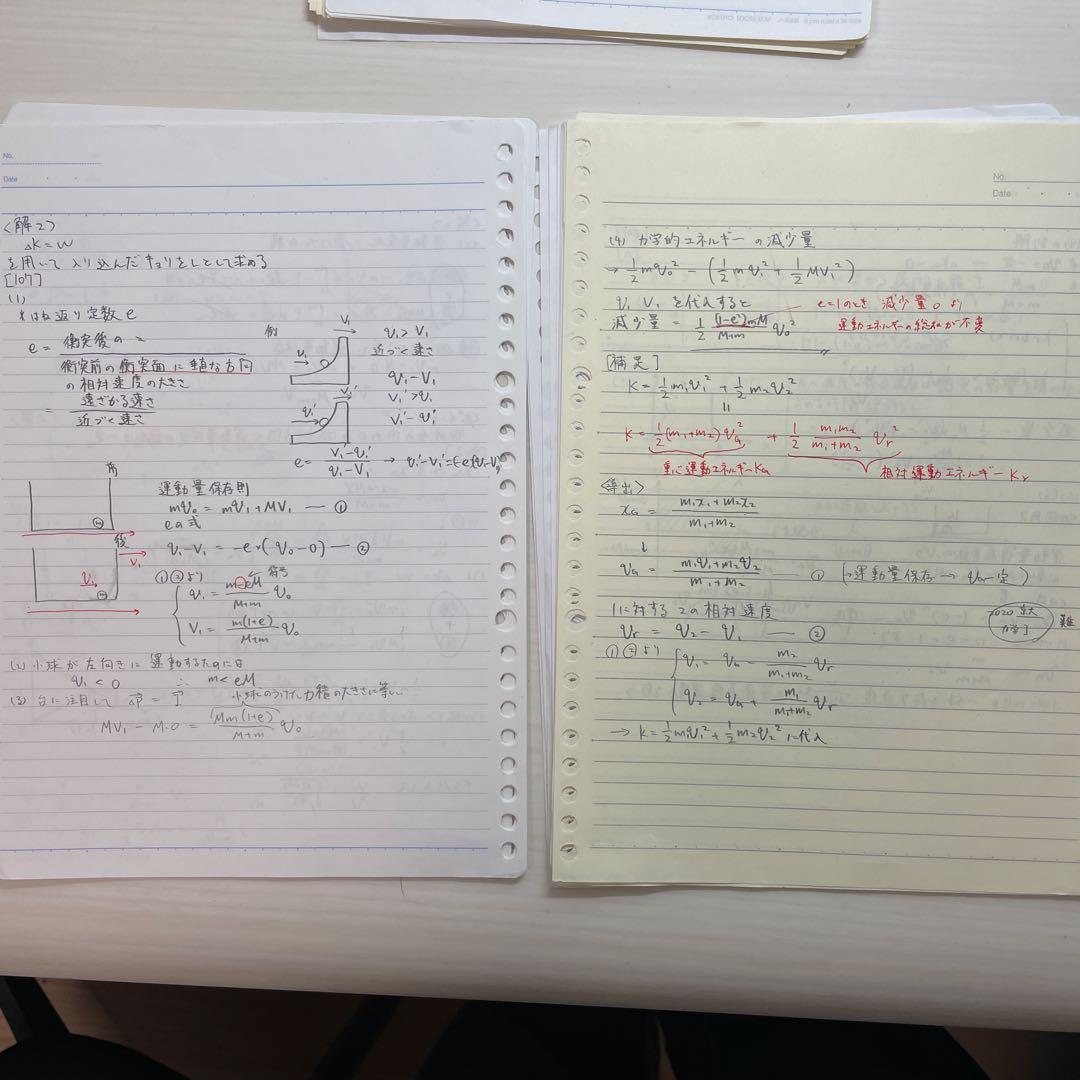 No.
Date
〈解2〉
ΔK = W
を用いて入り込んだキョリをLとして求める
[107]
(1)
*はね返り定数 e
e = 衝突後の 〃 / 衝突前の衝突面に垂直な方向の相対速度の大きさ
= 遠ざかる速さ / 近づく速さ
例
V₁
v₁
v₁ > V₁
近づく速さ
v₁ - V₁
V₁'
v₁'
V₁' > v₁'
V₁' - v₁'
e = (V₁' - v₁') / (v₁ - V₁) → v₁' - V₁' = -e(v₁ - V₁)
前
運動量保存則
mv₀ = mv₁ + MV₁ — ①
eの式
後
V₁
v₁ - V₁ = -e × (v₀ - 0) — ②
①②より
符号
v₁ = (m - eM) / (M+m) v₀
V₁ = m(1+e) / (M+m) v₀
(2) 小球が左向きに運動するためには
v₁ < 0 ∴ m < eM
(3) 台に注目して ΔP = I
小球のうけた力積の大きさに等しい
MV₁ - M·0 = Mm(1+e) / (M+m) v₀
No.
Date
(4) 力学的エネルギーの減少量
→ 1/2 mv₀² - (1/2 mv₁² + 1/2 MV₁²)
v₁ V₁ を代入すると
e=1のとき 減少量0 より
減少量 = 1/2 (1-e²)mM / (M+m) v₀²
運動エネルギーの総和が不変
[補足]
K = 1/2 m₁v₁² + 1/2 m₂v₂²
||
K = 1/2 (m₁+m₂) v_G² + 1/2 m₁m₂ / (m₁+m₂) v_r²
重心運動エネルギー K_G
相対運動エネルギー K_r
〈導出〉
x_G = (m₁x₁ + m₂x₂) / (m₁+m₂)
↓
v_G = (m₁v₁ + m₂v₂) / (m₁+m₂) ① (→運動量保存 → v_G 一定)
1に対する2の相対速度
2020 京大
力学1
難
v_r = v₂ - v₁ — ②
①②より
v₁ = v_G - m₂ / (m₁+m₂) v_r
v₂ = v_G + m₁ / (m₁+m₂) v_r
→ K = 1/2 m₁v₁² + 1/2 m₂v₂² に代入